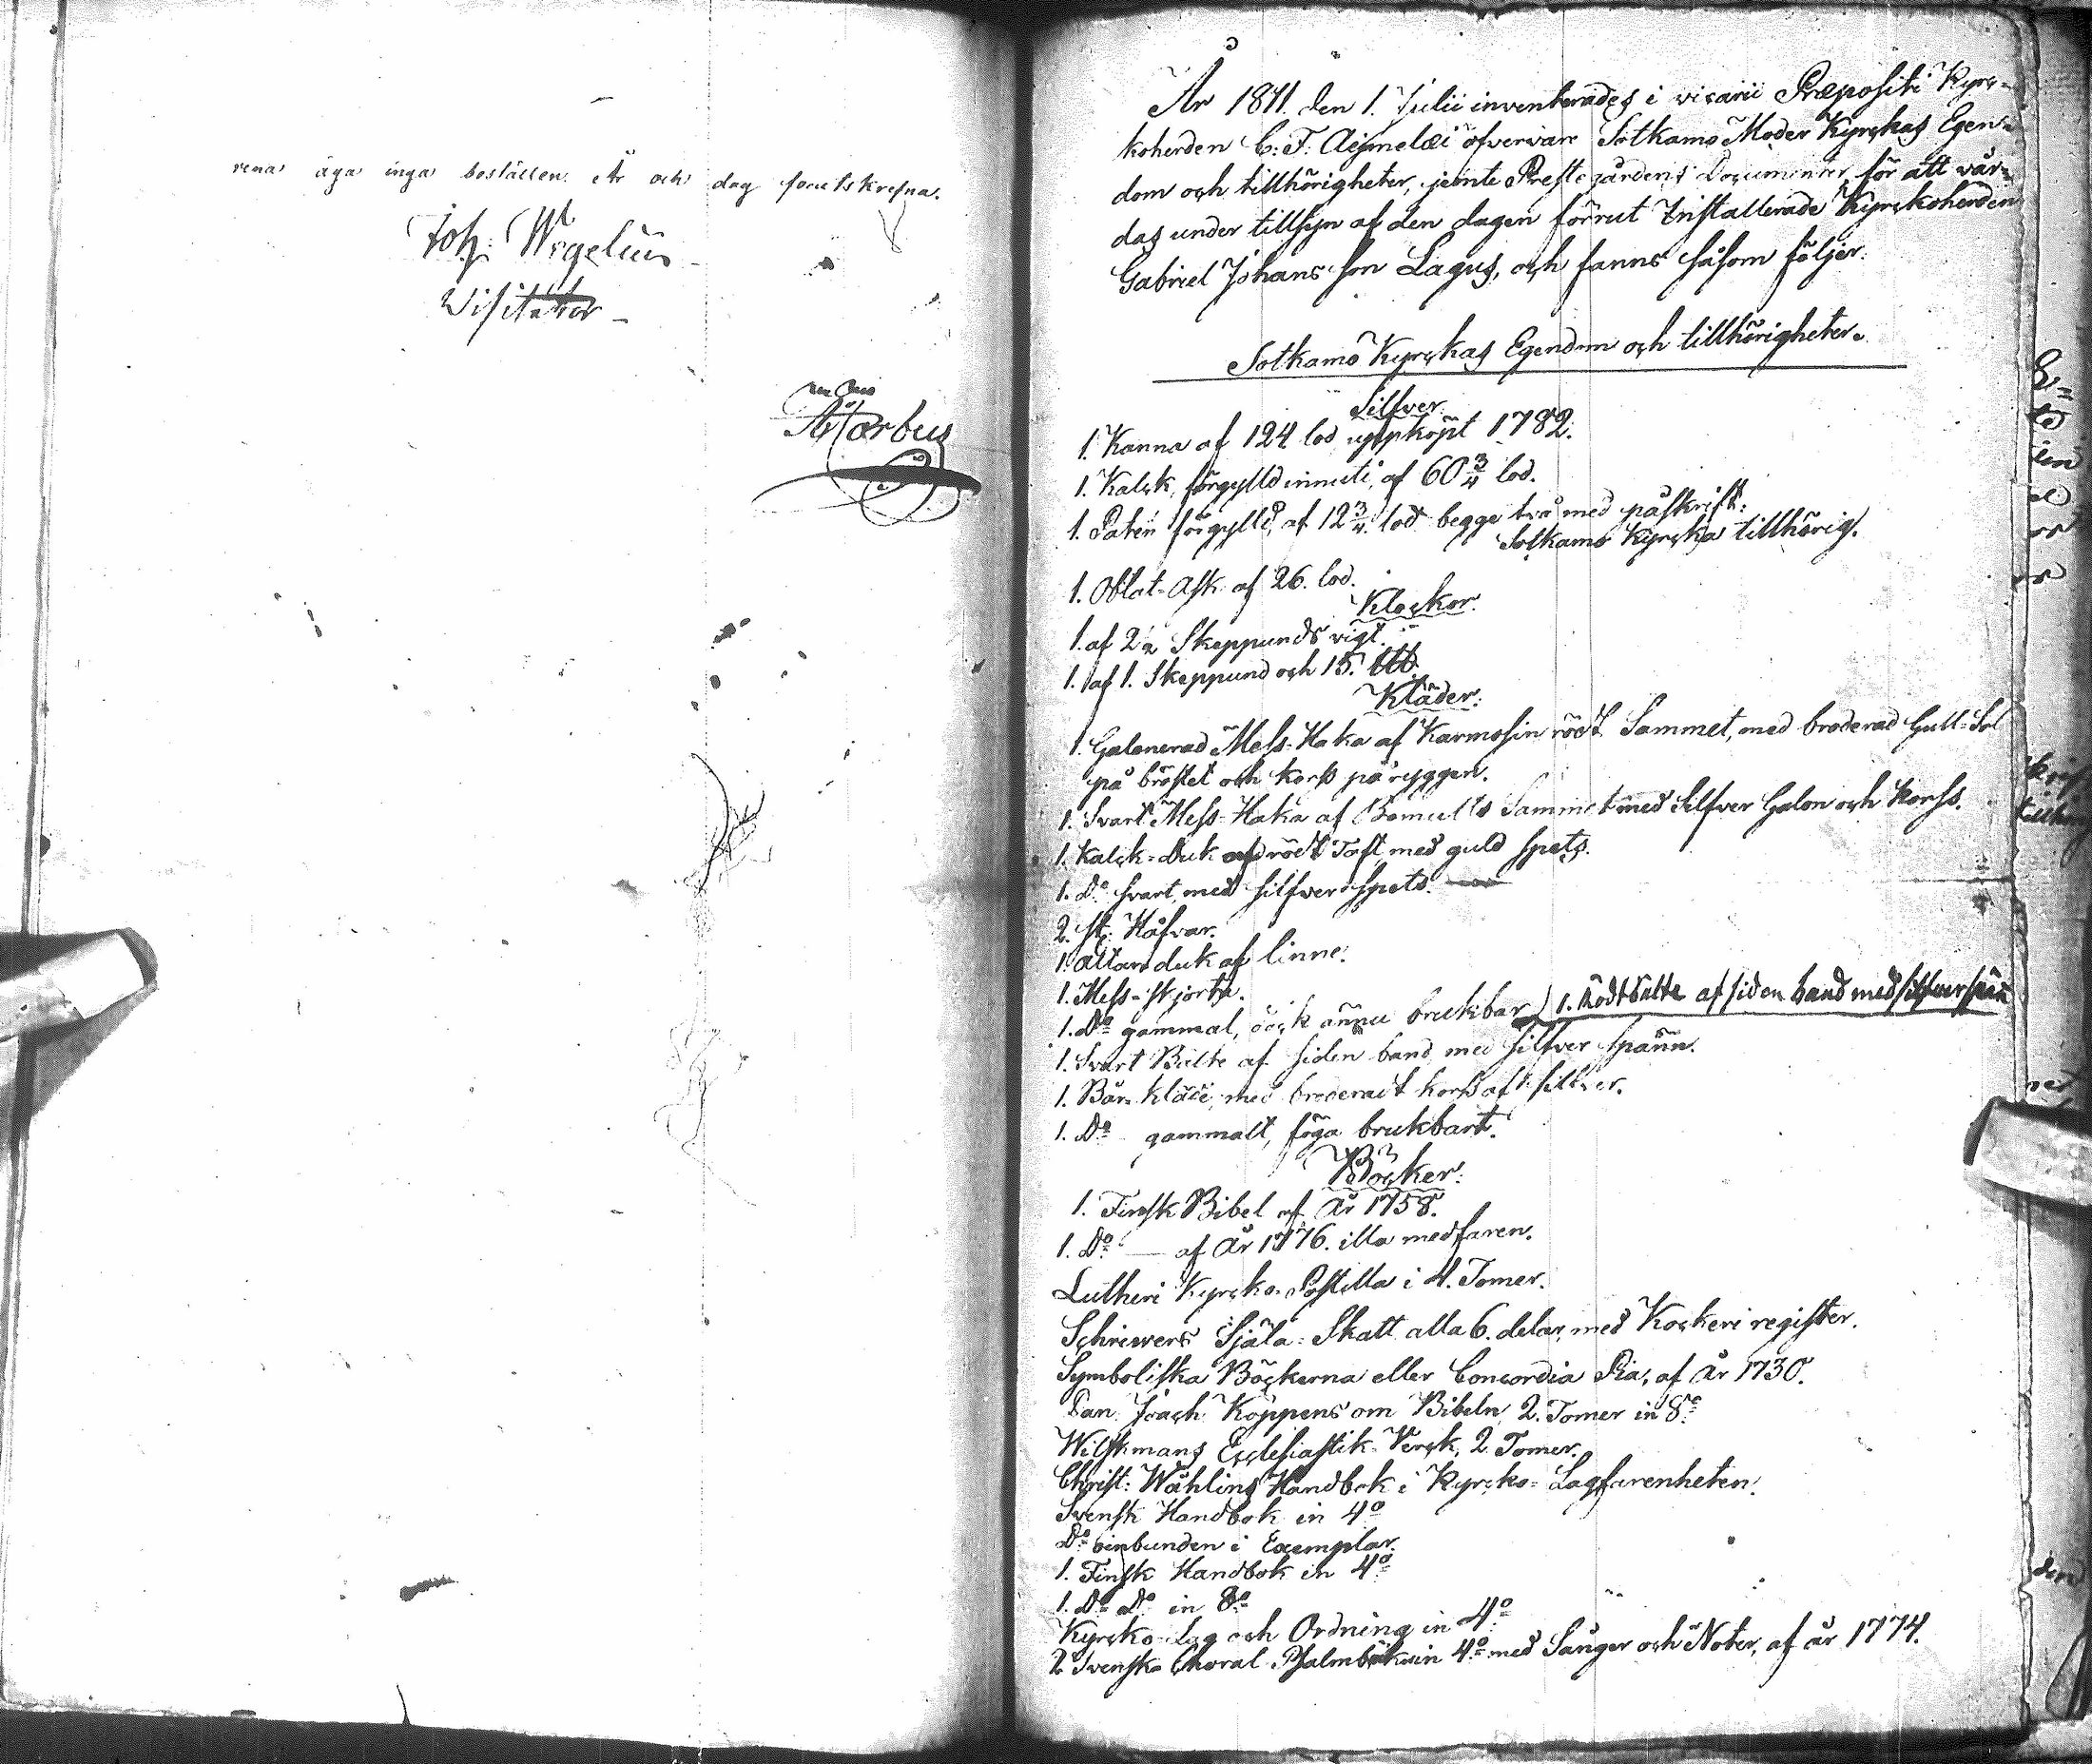 rena äga inga boställen. År och dag förutskrefna.
Joh: Wegelius
Visitator
År 1811. den 1. Julii inventerades i vicarii Præpositi Kyrc-
koherden C: F: Aejmelæi öfvervaro Sotkamo Moder Kyrckas Egen-
dom och tillhörigheter, jemte Prestegårdens Documenter för att vår-
das under tillsyn af den dagen förrut Installerade Kyrckoherden
Gabriel Johansson Lagus, och fanns såsom följer.
Sotkamo Kyrckas Egendom och tillhörigheter.
Silfver.
1. Kanna af 124 lod uppköpt 1782.
1. Kalck, förgylld innuti, af 60 3/4 lod.
1. Patén förgylld, af 12 3/4 lod begge två med påskrift:
Sotkamo Kyrcka tillhörig.
1. Oblat-Ask af 26. lod.
Klockor.
1. af 2 1/2 Skeppunds vigt.
1. af 1. Skeppund och 15. L℔.
Kläder:
1. Galonerad Mess-Haka af Karmosin rödt Sammet, med broderad Gull-Sol
på bröstet och korss på ryggen.
1. Svart Mess-Haka af Bomulls Sammet med Silfver Galon och korss.
1. Kalck-Duk af rödt Taft med guld spets.
1. Do svart med silfver spets.
2. st: Håfvar.
1. Altare duk af linne.
1. Mess-skjorta.
1. Do gammal, dock ännu brukbar 1. Rödt bälte af siden band med silfver spän
1. Svart Bälte af siden band med silfver spänn.
1. Bår-kläde, med broderadt korss af silfver.
1. Do gammalt, föga brukbart.
Böcker:
1. Finsk Bibel af År 1758.
1. Do — af År 1776. illa medfaren.
Lutheri Kyrcko-Postilla i 4. Tomer.
Schrivers Själa-Skatt alla 6. delar, med Kockeri register.
Symboliska Böckerna eller Concordia Pia, af År 1730.
Dan. Joach. Köppens om Bibeln 2. Tomer in 8o
Wilskmans Ecclesiastik-Verck, 2 Tomer.
Christ: Wåhlins Handbok i Kyrcko-Lagfarenheten.
Svensk Handbok in 4o
Do oinbunden i Exemplar.
1. Finsk Handbok in 4o
1. Do Do in 8o
Kyrcko-Lag och Ordning in 4o
2 Svenska Choral Psalmböcker in 4o med Sånger och Noter, af år 1774.